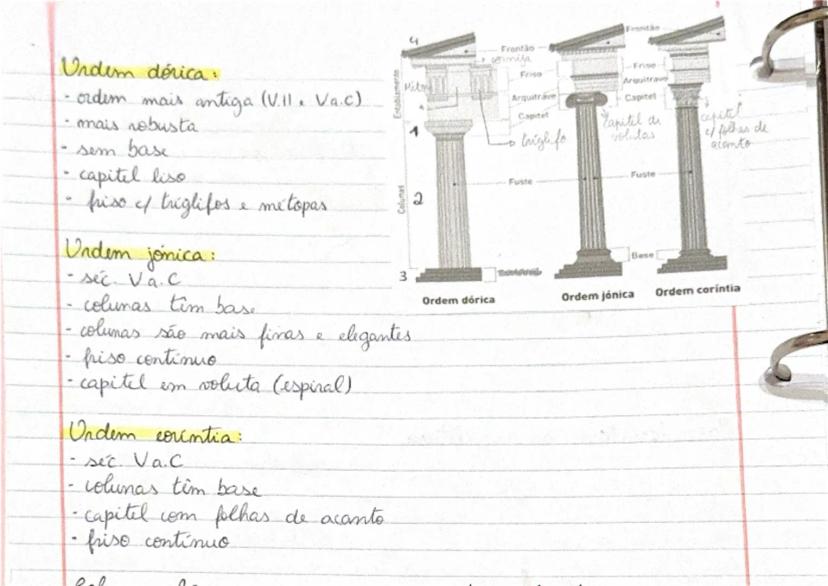 Ordem dórica:
- ordem mais antiga (VII e V a.C)
- mais robusta
- sem base
- capitel liso
- friso c/ tríglifos e métopas
Ordem jónica:
- séc. V a.C
- colunas têm base
- colunas são mais finas e elegantes
- friso contínuo
- capitel em voluta (espiral)
Ordem coríntia:
- séc. V a.C
- colunas têm base
- capitel com folhas de acanto
- friso contínuo
4
Frontão
Frontão
cornija
Friso
Friso
Arquitrave
Arquitrave
Capitel
Capitel
Entablamento
1
tríglifo
capitel de
volutas
capitel
c/ folhas de
acanto
2
Colunas
Fuste
Fuste
Base
3
Ordem dórica
Ordem jónica
Ordem coríntia